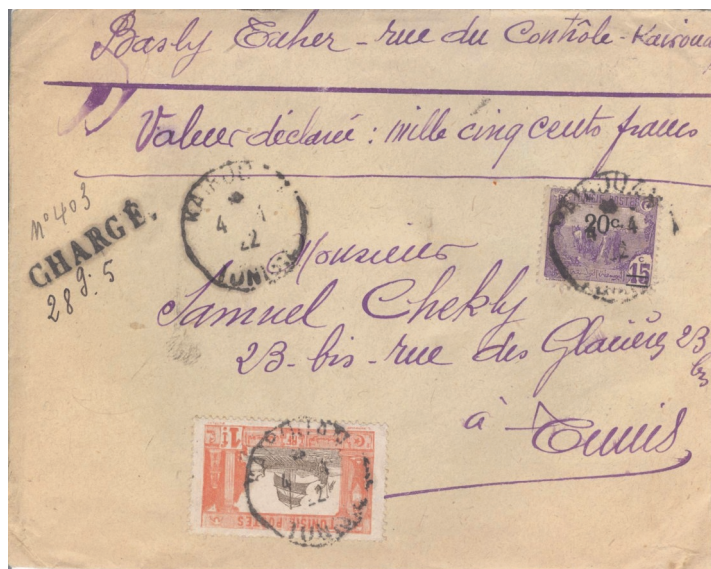 Basly Taher - rue du Contrôle - Kairoua
Valeur déclarée : mille cinq cents francs
n° 403
CHARGÉ.
28 g. 5
KAIROU
4 - 4
22
TUNISI
20c
15
Monsieur
Samuel Chekly
23 - bis - rue des Glacières 23
bis
à Tunis
1 f
4 4
22
TUNISIE POSTES